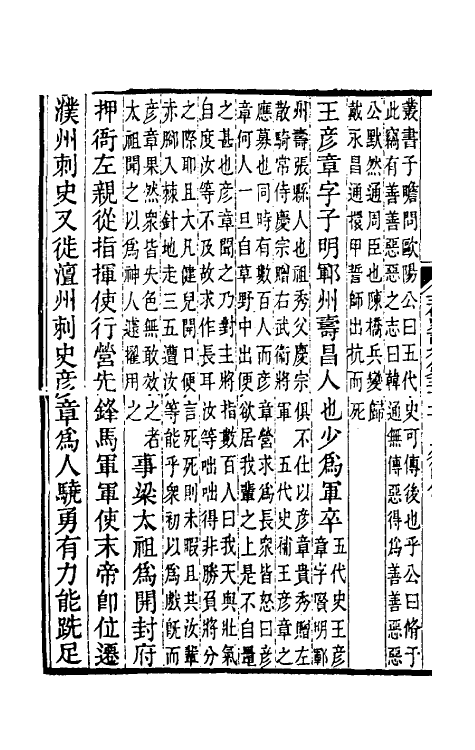 叢書子瞻問歐陽公曰五代史可傳後也乎公曰脩于
此竊有善善惡惡之志曰韓通無傳惡得爲善善惡惡
公默然通周臣也陳橋兵變歸
戴永昌通擐甲誓師出抗而死
王彥章字子明鄆州壽昌人也少爲軍卒
五代史王彥
章字賢明鄆
州壽張縣人也祖秀父慶宗俱不仕以彥章貴秀贈左
散騎常侍慶宗贈右武衛將軍 五代史補王彥章之
應募也同時有數百人而彥章營求爲長衆皆怒曰彥
章何人一旦自草野中出便欲居我輩之上是不自量
之甚也彥章聞之乃對主將指數百人曰我天與壯氣
自度汝等不及故求作長耳汝等咄咄得非勝負將分
之際耶且大凡健兒開口便言死死則未暇且共汝輩
赤腳入棘針地走三五遭汝等能乎衆初以爲戲旣而
彥章果然衆皆失色無敢效之者
太祖聞之以爲神人遽擢用之
事梁太祖爲開封府
押衙左親從指揮使行營先鋒馬軍軍使末帝卽位遷
濮州刺史又徙澶州刺史彥章爲人驍勇有力能跣足